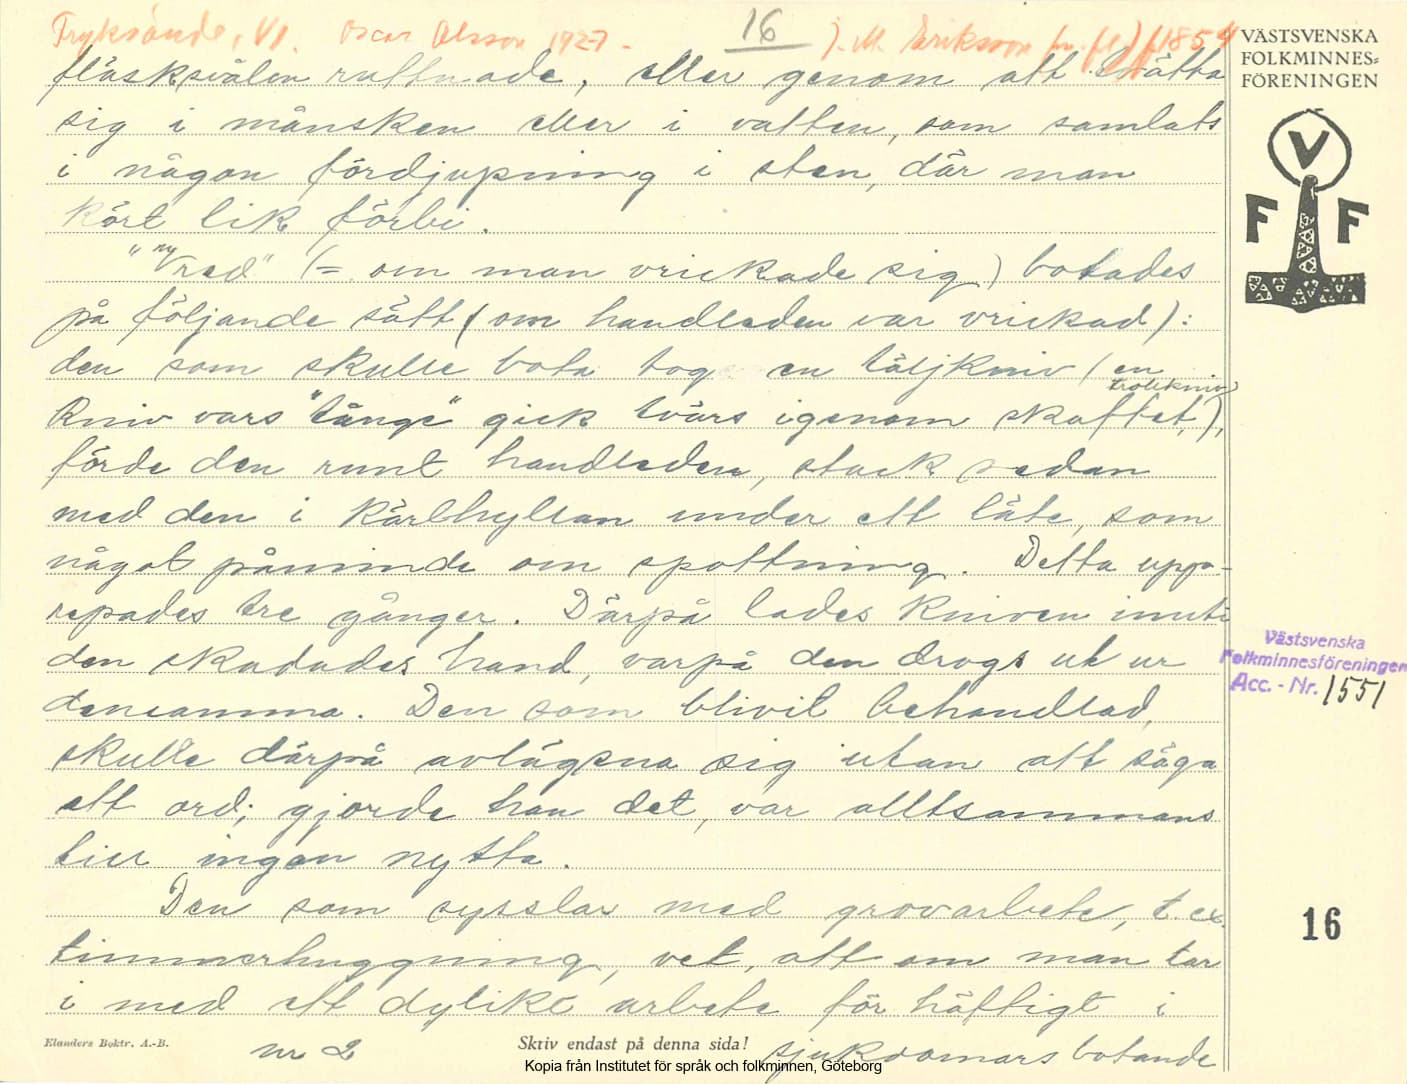 Fryksände, Vl. Oscar Olsson 1927. 16 J. M. Eriksson f. 1854
VÄSTSVENSKA
FOLKMINNES-
FÖRENINGEN
V
F F
fläsksvålen ruttnade, eller genom att tvätta
sig i månsken eller i vatten, som samlats
i någon fördjupning i sten, där man
kört lik förbi.
"Vred" (= om man vrickade sig) botades
på följande sätt (om handleden var vrickad):
den som skulle bota tog en täljkniv (en
trollkniv)
kniv vars "tånge" gick tvärs igenom skaftet,),
förde den runt handleden, stack sedan
med den i kärlhyllan under ett läte, som
något påminde om spottning. Detta upp-
repades tre gånger. Därpå lades kniven inuti
den skadades hand, varpå den drogs ut ur
densamma. Den som blivit behandlad,
skulle därpå avlägsna sig utan att säga
ett ord; gjorde han det, var alltsammans
till ingen nytta.
Den som sysslar med grovarbete, t. ex.
timmerhuggning, vet, att om man tar
i med ett dylikt arbete för häftigt i
Västsvenska
Folkminnesföreningen
Acc. - Nr. 1551
16
Elanders Boktr. A.-B.
nr 2
Skriv endast på denna sida!
sjukdomars botande
Kopia från Institutet för språk och folkminnen, Göteborg